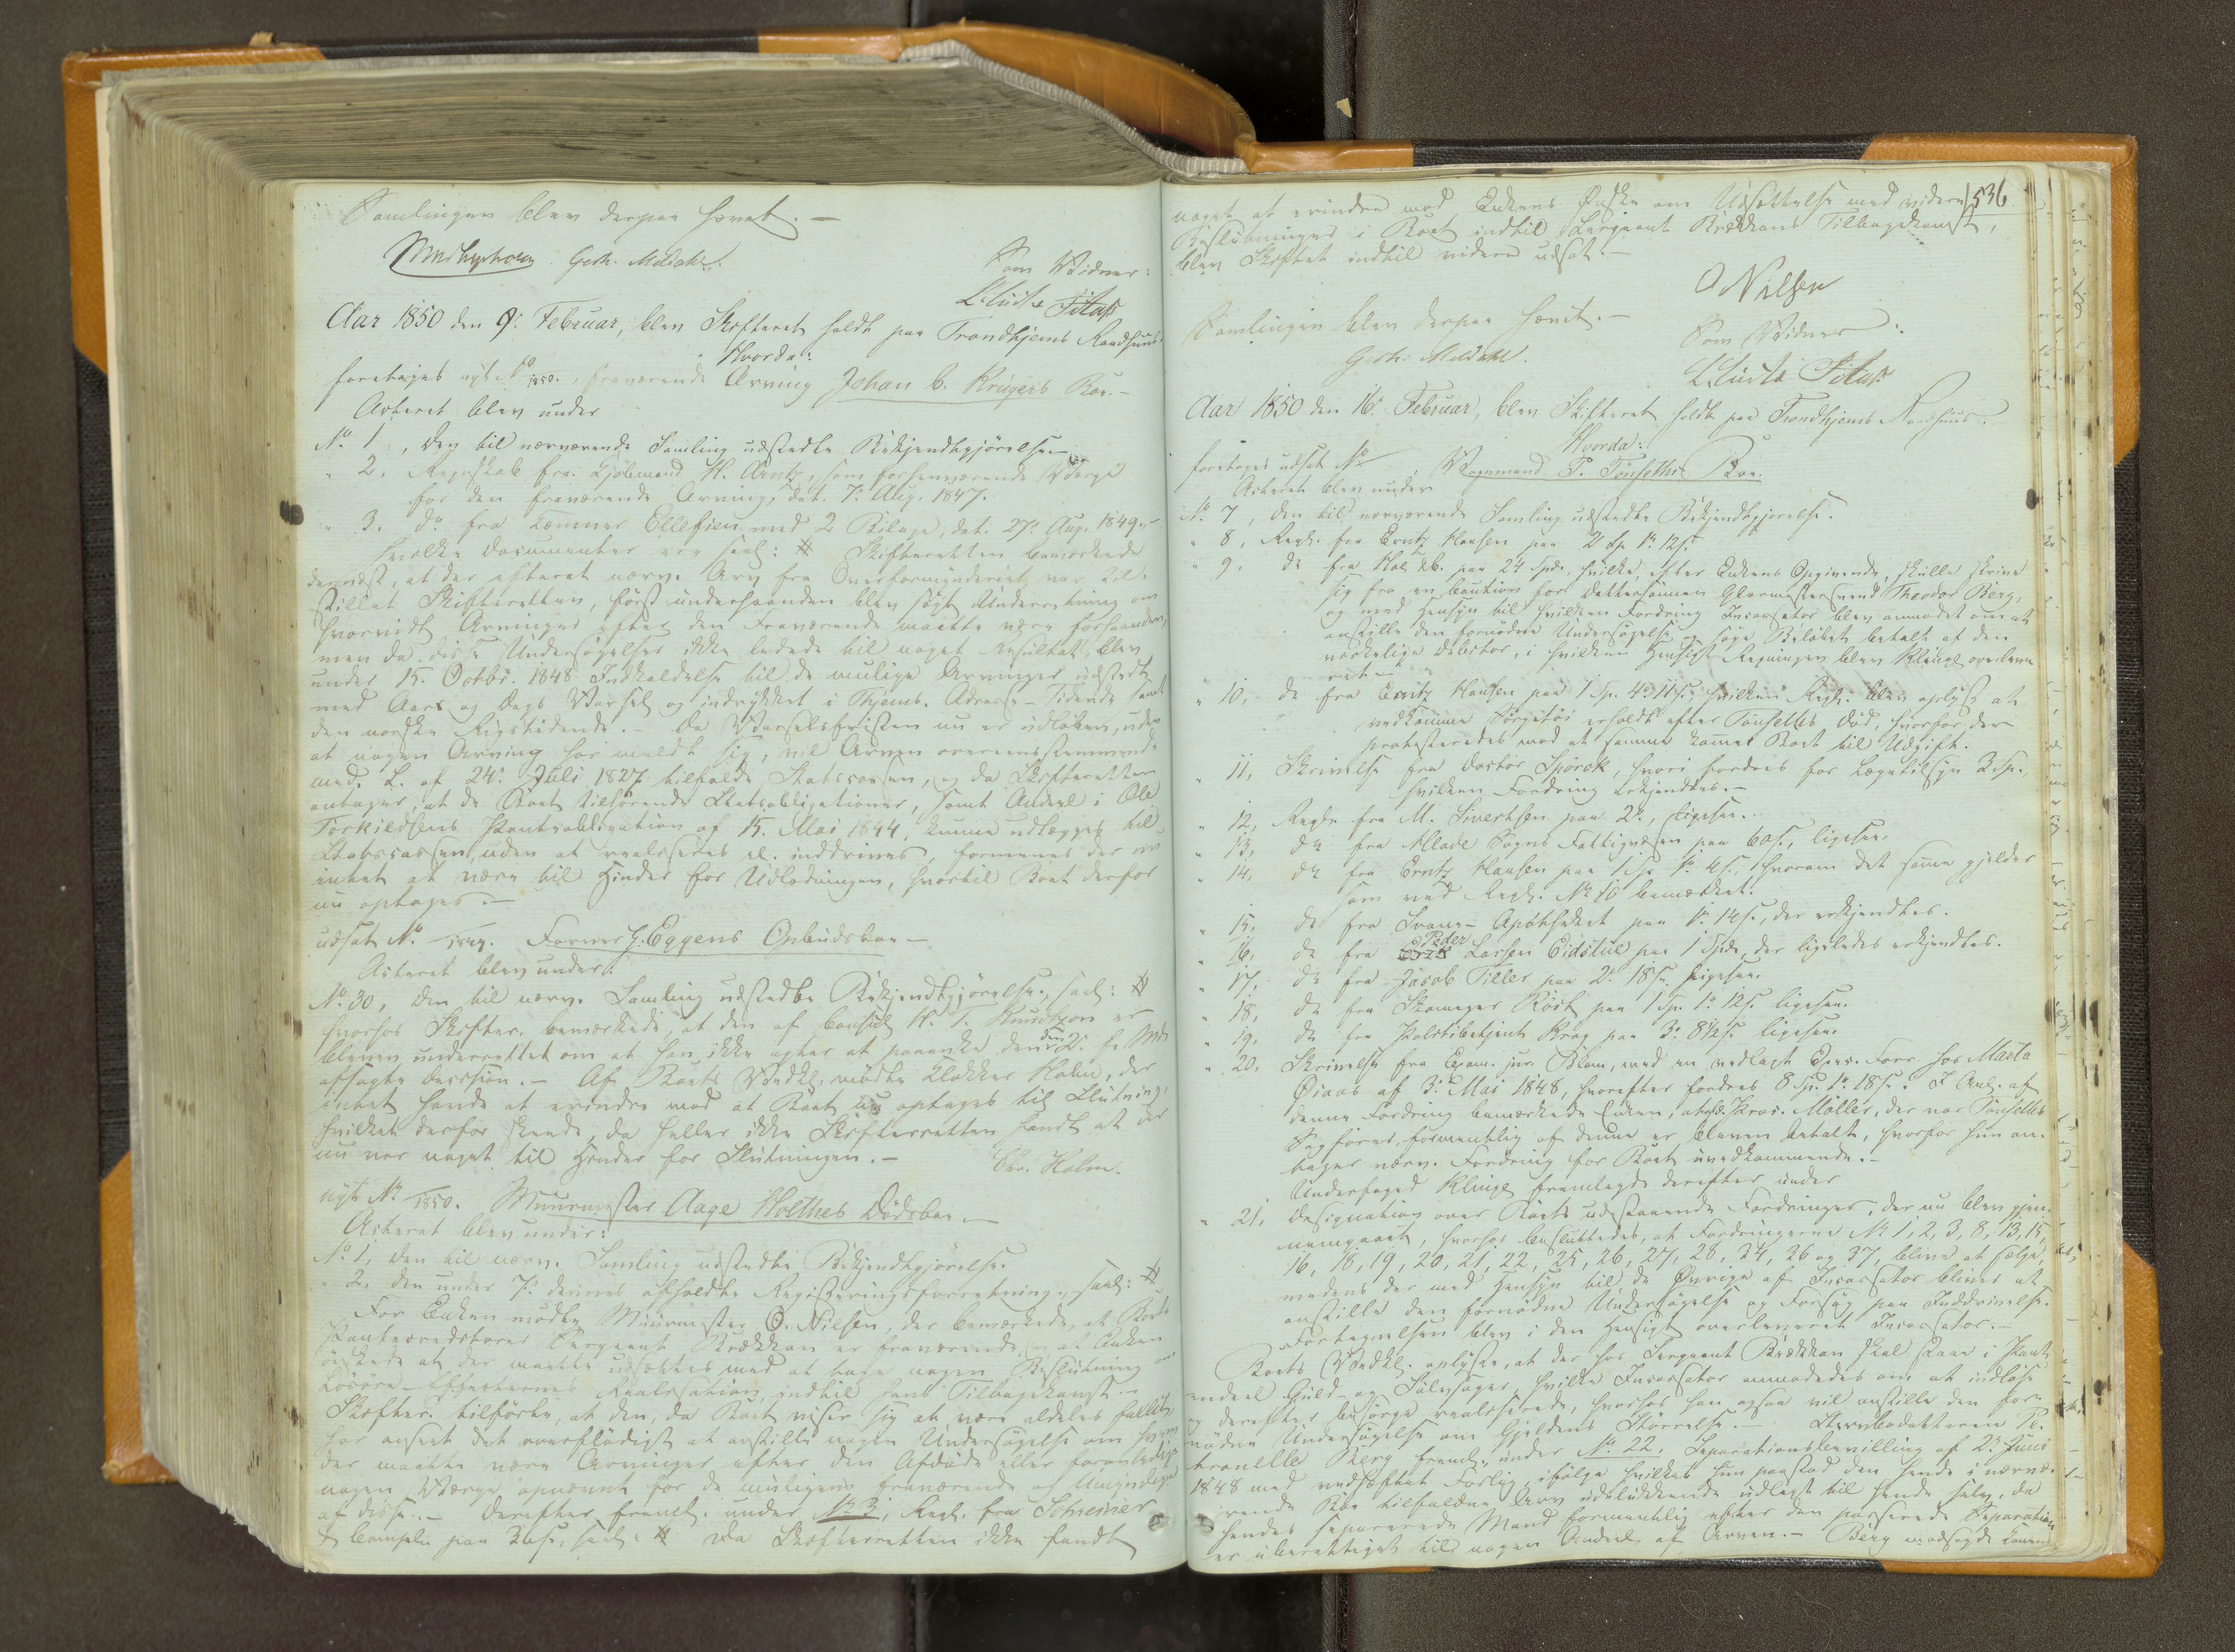 Samlingen blev derpaa hævet. —
Gerh. Moldahl.
Som Vidner:
L. Lüdtke
Aar 1850 den 9: Februar, blev Skifteret holdt paa Trondhjems Raadhuus.
Hvorda:
foretages nyt No /1850. fraværende Arving Johan C. Krügers Boe. —
Acteret blev under
No 1, den til nærværende Samling udstedte Bekjendtgjørelse. —
" 2. Regnskab fra Kjøbmand H. Arntz, som forhenværende Værge
for den fraværende Arving, dat. 7: Aug. 1847.
" 3. do fra Kæmner Ellefsen med 2 Bilage, dat. 27: Aug. 1849. —
hvilke Documenter ere saal: # Skifteretten bemærkede
dernæst, at der efterat nærv. Arv fra Overformynderiet var til-
stillet Skifteretten, først underhaanden blev søgt Underretning om
hvorvidt Arvinger efter den Fraværende maatte være forhaanden,
men da disse Undersøgelser ikke ledede til noget Resultat, blev
under 15. Octbr. 1848 Indkaldelse til de mulige Arvinger udstedt
med Aars og Dags Varsel og indrykket i Thjems. Adresse-Tidende samt
den norske Rigstidende. — Da Varselsfristen nu er udløben, uden
at nogen Arving har meldt sig, vil Arven overeensstemmende
med L. af 24: Juli 1827 tilfalde Statscassen, og da Skifteretten
antager, at de Boet tilhørende Statsobligationer, samt Andeel i Ole
Torkildsens Pantobligation af 15. Mai 1844, kunne udlægges til
Statscassen, uden at realiseres el. inddrives, formenes der nu
intet at være til Hinder for Udlodningen, hvortil Boet derfor
nu optages. —
udsat No /1849. Farver H. Eggens Opbudsboe —
Acteret blev under:
No 30, den til nærv. Samling udstedte Bekjendtgjørelse, saal: #
hvorhos Skifter. bemærkede, at den af Consul H. T. Knudtzon er
bleven underrettet om at han ikke agter at paaanke den den 2: f. Md.
afsagte Decision. — Af Boets Vedkl. mødte Klokker Holm, der
intet havde at erindre mod at Boet nu optages til Slutning,
hvilket derfor skeede, da heller ikke Skifteretten fandt at der
nu var noget til Hinder for Slutningen. — Chr. Holm.
nyt No /1850. Muurmester Aage Holthes Dødsboe. —
Acteret blev under:
No 1, den til nærv. Samling udstedte Bekjendtgjørelse.
" 2. den under 7: dennes afholdte Registreringsforretning, saal: #
For Enken mødte Muurmester O. Nilsen, der bemærkede, at Boets
Pantecreditorer Sergeant Brækkan er fraværende, og at Enken
ønskede at der maatte udsættes med at tage nogen Beslutning om
Løsøre-Effecternes Realisation, indtil hans Tilbagekomst. —
Skifter. tilførte, at den, da Boet viser sig at være aldeles fallit,
har anseet det overflødigt at anstille nogen Undersøgelse om hvem
der maatte være Arvinger efter den Afdøde eller foranledige
nogen Værge opnævnt for de muligens fraværende og Umyndige
af disse. — Derefter freml. under No 3, Regn. fra Schreiner
& Compagni paa 36 s., saal: # Da Skifteretten ikke fandt
536
noget at erindre mod Enkens Ønske om Udsættelse med videre
Beslutninger i Boet indtil Sergeant Brækkans Tilbagekomst,
blev Skiftet indtil videre udsat. —
O Nilsen
Samlingen blev derpaa hævet. —
Som Vidner:
Gerh. Moldahl.
L. Lüdtke
Aar 1850 den 16: Februar, blev Skifteret holdt paa Trondhjems Raadhuus.
Hvorda:
foretages udsat No , Vognmand P. Tønseths Boe.
Acteret blev under
No 7, den til nærværende Samling udstedte Bekjendtgjørelse.
" 8, Regn. fra Erntz Hansen paa 2 Sp. 1: 12 s.
" 9, do fra Hos. Ab. paa 24 Spd., hvilke, efter Enkens Opgivende, skulle skrive
sig fra en Caution for Dattersønnen Glarmestersvend Theodor Berg,
og med Hensyn til hvilken Fordring Incassator blev anmodet om at
anstille den fornødne Undersøgelse og søge Beløbet betalt af den
virkelige Debitor, i hvilken Hensigt Regningen blev Klinge overleve-
ret. —
" 10, do fra Erntz Hansen paa 1 Sp. 4: 11 s., hvilken Regn. blev oplyst at
vedkomme Sørgetøi erholdt efter Tønseths Død, hvorfor der
protesteredes mod at samme kommer Boet til Udgift.
" 11, Skrivelse fra Doctor Sjørck, hvori fordres for Lægetilsyn 3 Sp.
hvilken Fordring erkjendtes. —
" 12, Regn. fra M. Sivertsen paa 2:, ligesaa.
" 13, do fra Hlade Sogns Fattigvæsen paa 60 s., ligesaa.
" 14, do fra Erntz Hansen paa 1 Sp. 1: 4 s., hvorom det samme gjelder
som ved Regn. No 10 bemærket.
" 15, do fra Svane-Apotheket paa 1: 14 s., der erkjendtes.
" 16, do fra Peder Larsen Eidstue paa 1 Spd., der ligeledes erkjendtes.
" 17, do fra Jacob Tiller paa 2: 18 s. ligesaa.
" 18, do fra Skomager Røst paa 1 Sp. 1: 12 s. ligesaa.
" 19, do fra Politibetjent Krog paa 3: 8 1/2 s. ligesaa.
" 20, Skrivelse fra Exam. jur. Blom, med en vedlagt Exec. Forr. hos Marta
Øiaas af 3: Mai 1848, hvorefter fordres 8 Sp. 1: 18 s. I Anl. af
denne Fordring bemærkede Enken, at Proc. Møller, der var Tønseths
Sagfører, formentlig af denne er bleven betalt, hvorfor hun an-
tager nærv. Fordring for Boet uvedkommende. —
Underfoged Klinge fremlagde derefter under
" 21, Designation over Boets udestaaende Fordringer, der nu blev gjen-
nemgaaet, hvorhos besluttedes, at Fordringerne No 1, 2, 3, 8, 13, 15,
16, 18, 19, 20, 21, 22, 25, 26, 27, 28, 34, 36 og 37, blive at sælge,
medens der med Hensyn til de Øvrige af Incassator bliver at
anstille den fornødne Undersøgelse og Forsøg paa Inddrivelse.
Fortegnelsen blev i den Hensigt overleveret Incassator. —
Boets Vedkl. oplyste, at der hos Sergeant Brækkan skal staae i Pant
endeel Guld- og Sølvsager, hvilke Incassator anmodedes om at indløse
og derefter besørge realiserede, hvorhos han ogsaa vil anstille den for-
nødne Undersøgelse om Gjeldens Størrelse. — Stervbodatteren Pe-
tronelle Berg freml. under No 22, Separationsbevilling af 2: Juni
1848 med vedhæftet Forlig, ifølge hvilket hun paastod den hende i nærvæ-
rende Boe tilfaldne Arv udelukkende udlagt til hende selv, da
hendes separerede Mand formentlig efter den passerede Separation
er uberettiget til nogen Andeel af Arven. — Berg modsagde